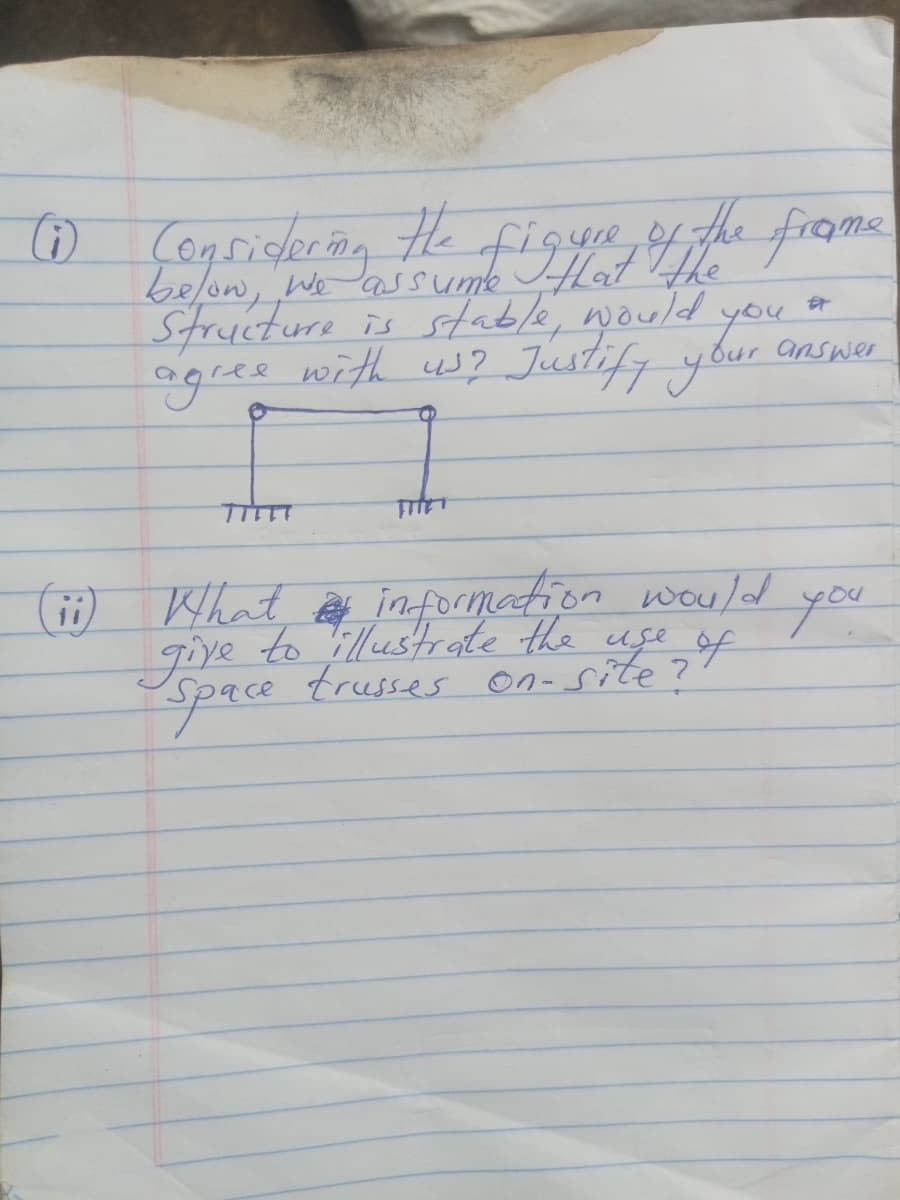 (i) Considering the figure of the frame
below, we assume that the
structure is stable, would you
agree with us? Justify your answer
(ii) What information would you
give to illustrate the use of
space trusses on-site?